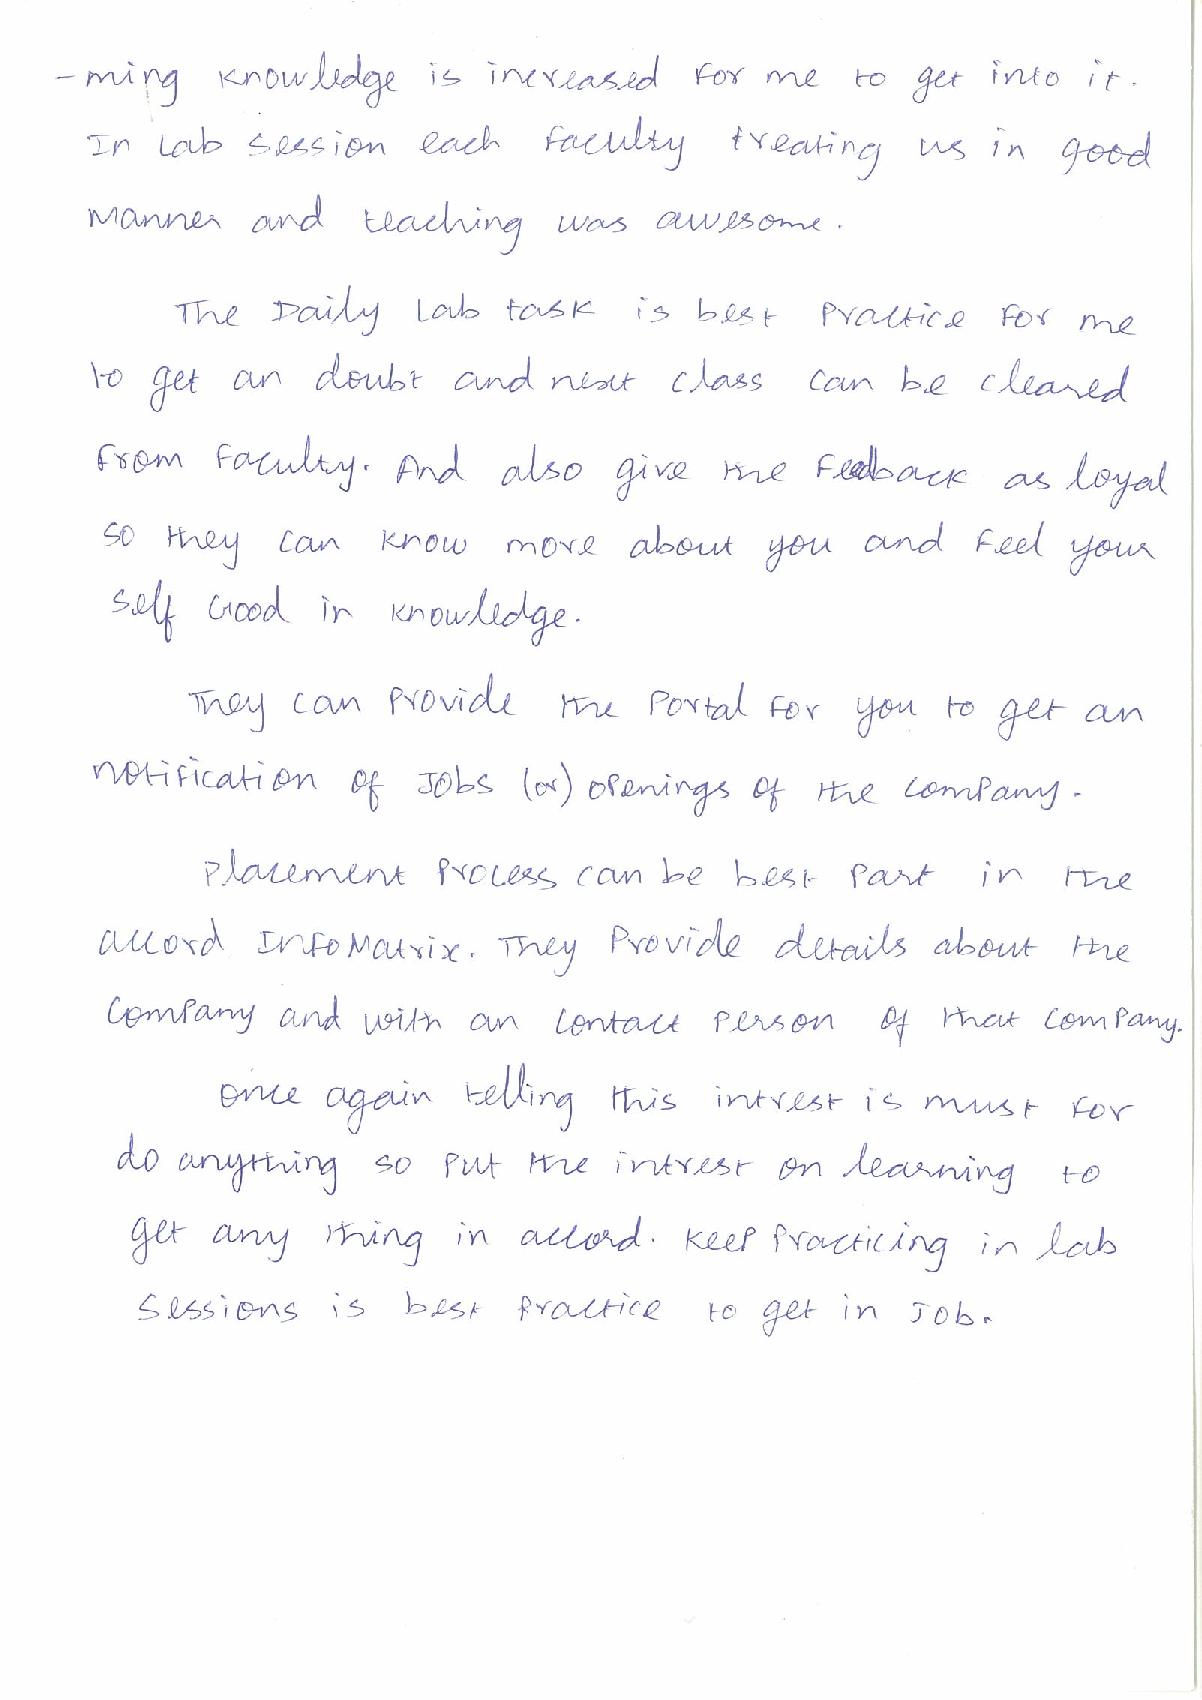 -ming knowledge is increased for me to get into it.
In Lab Session each faculty treating us in good
manner and teaching was awesome.
The Daily Lab task is best practice for me
to get an doubt and next class can be cleared
from faculty. And also give the feedback as loyal
so they can know more about you and feel your
self Good in knowledge.
They can provide the portal for you to get an
notification of Jobs (or) openings of the company.
Placement process can be best part in the
accord InfoMatrix. They provide details about the
company and with an contact person of that company.
once again telling this intrest is must for
do anything so put the intrest on learning to
get any thing in accord. Keep practicing in lab
sessions is best practice to get in Job.